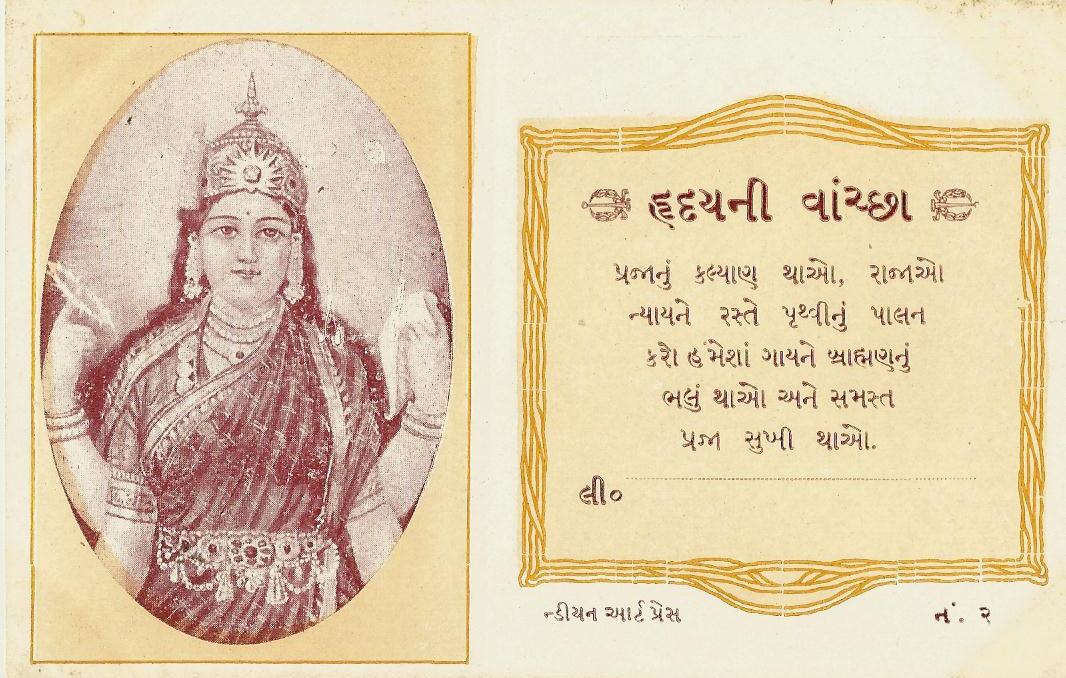 હૃદયની વાંચ્છા
પ્રજાનું કલ્યાણ થાઓ, રાજાઓ
ન્યાયને રસ્તે પૃથ્વીનું પાલન
કરો હંમેશાં ગાયને બ્રાહ્મણનું
ભલું થાઓ અને સમસ્ત
પ્રજા સુખી થાઓ.
લી૦
ન્ડીયન આર્ટ પ્રેસ
નં. ૨